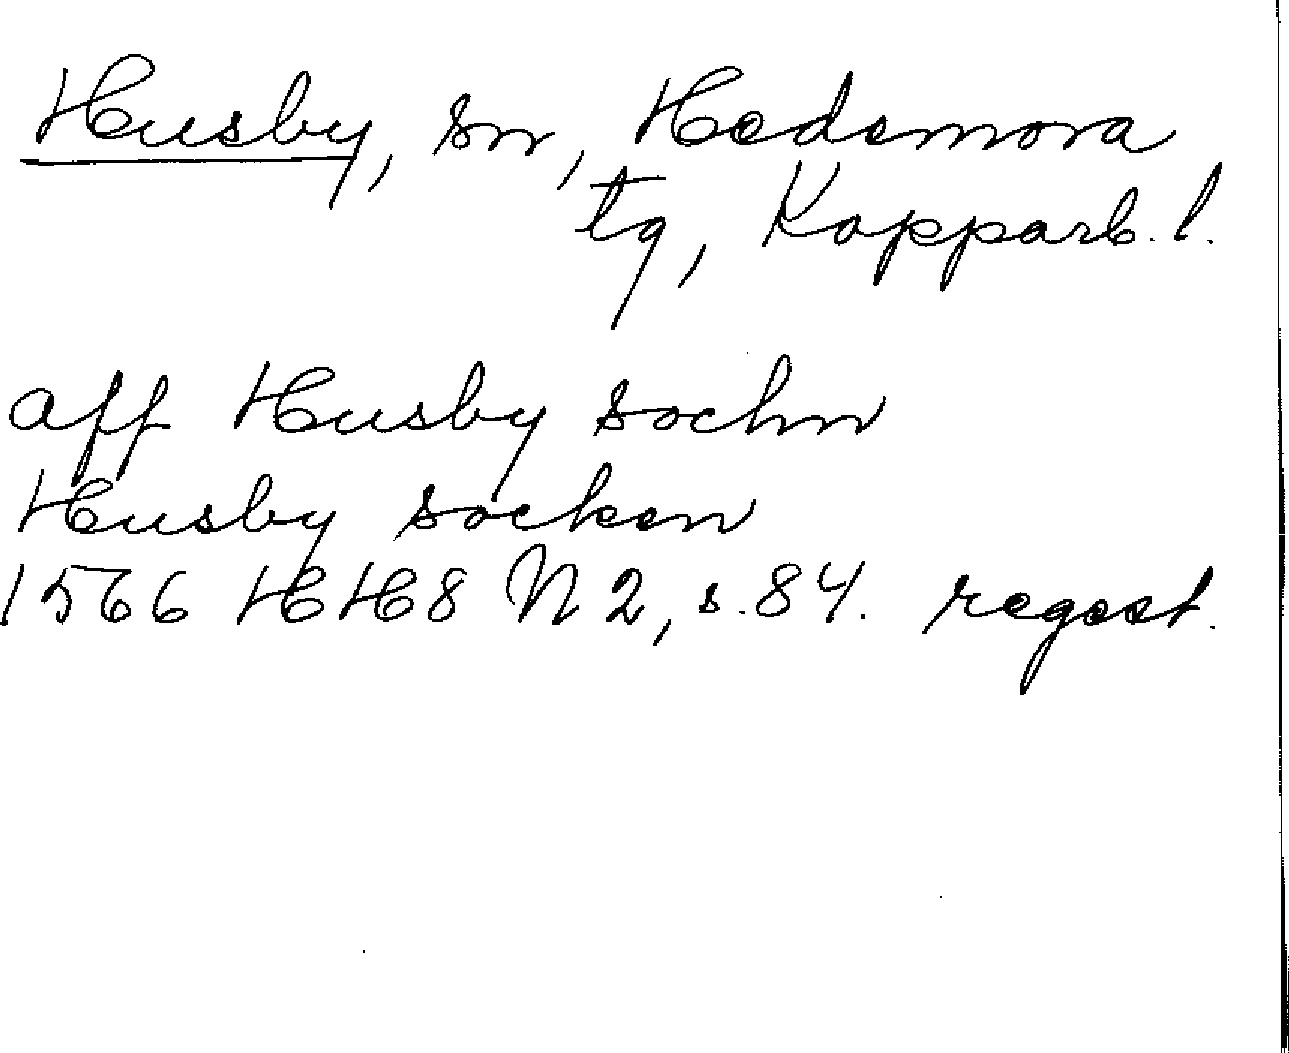 Husby, sn, Hedemora
tg, Kopparb. l.
aff Husby sochn
Husby socken
1566 HH8 N 2, s. 84. regest.